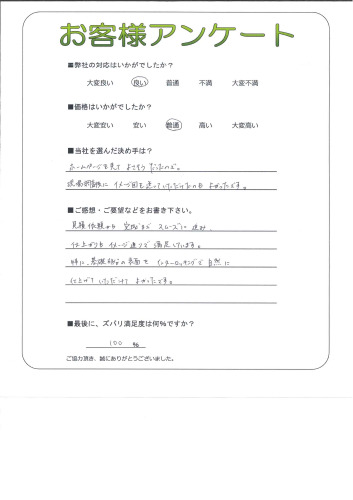 お客様アンケート
■弊社の対応はいかがでしたか？
大変良い 良い 普通 不満 大変不満
■価格はいかがでしたか？
大変安い 安い 普通 高い 大変高い
■当社を選んだ決め手は？
ホームページを見て よさそうだったので。
現場確認後に イメージ図を送っていただけたのも よかったです。
■ご感想・ご要望などをお書き下さい。
見積依頼から 完成まで スムーズに進み、
仕上がりも イメージ通りで 満足しています。
特に、基礎部分の 表面を インターロッキングで 自然に
仕上げていただけて よかったです。
■最後に、ズバリ満足度は何％ですか？
100 ％
ご協力頂き、誠にありがとうございました。